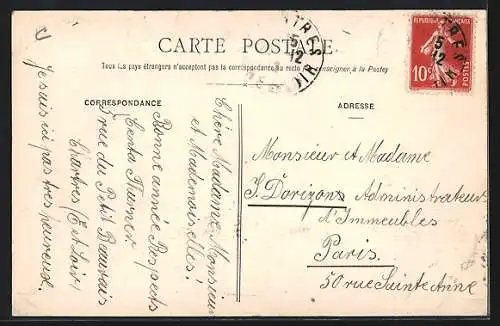 CARTE POSTALE
Tous les pays étrangers n'acceptent pas la correspondance au recto (se renseigner à la Poste)
CORRESPONDANCE
ADRESSE
RÉPUBLIQUE FRANÇAISE
10c
POSTES
5
12
Chère Madame, Monsieur
et Mademoiselle!
Bonne année Respects
Centa Thurner
3 rue du Petit Beauvais
Chartres (E et Loir)
Je suis ici pas très heureuse.
Monsieur et Madame
S. Dorizon Administrateur
d'Immeubles
Paris.
50 rue Sainte Anne